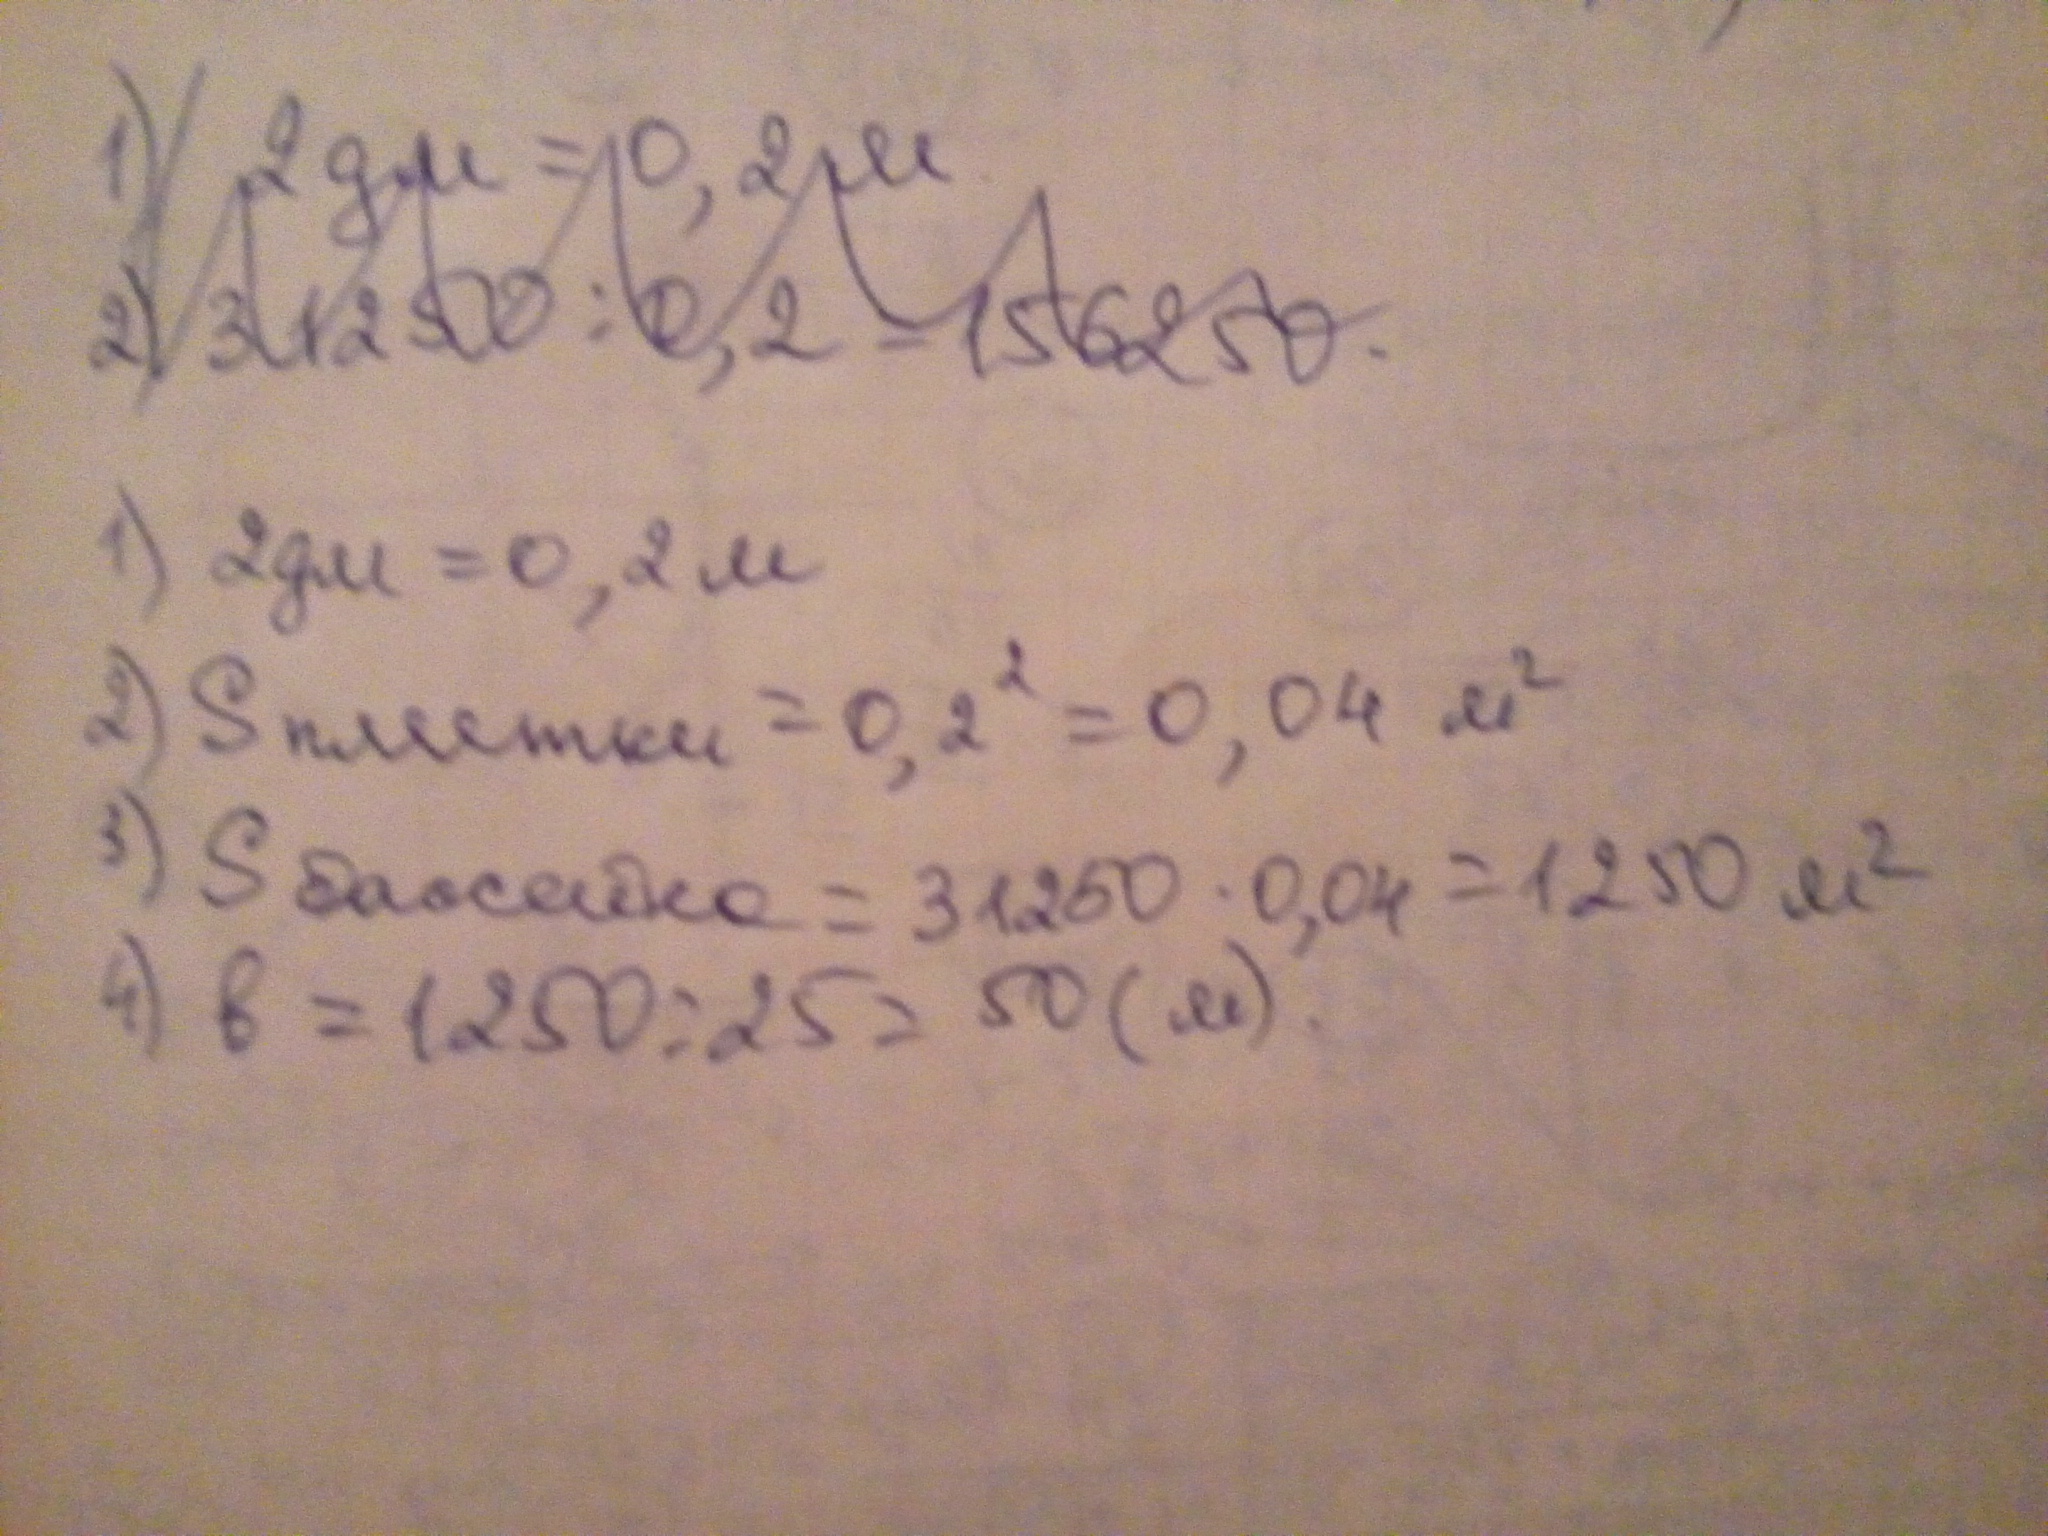 1) 2дм = 0,2м
2) 31250 : 0,2 = 156250.
1) 2дм = 0,2м
2) Sплитки = 0,2² = 0,04 м²
3) Sбассейна = 31250 · 0,04 = 1250 м²
4) в = 1250 : 25 = 50 (м).